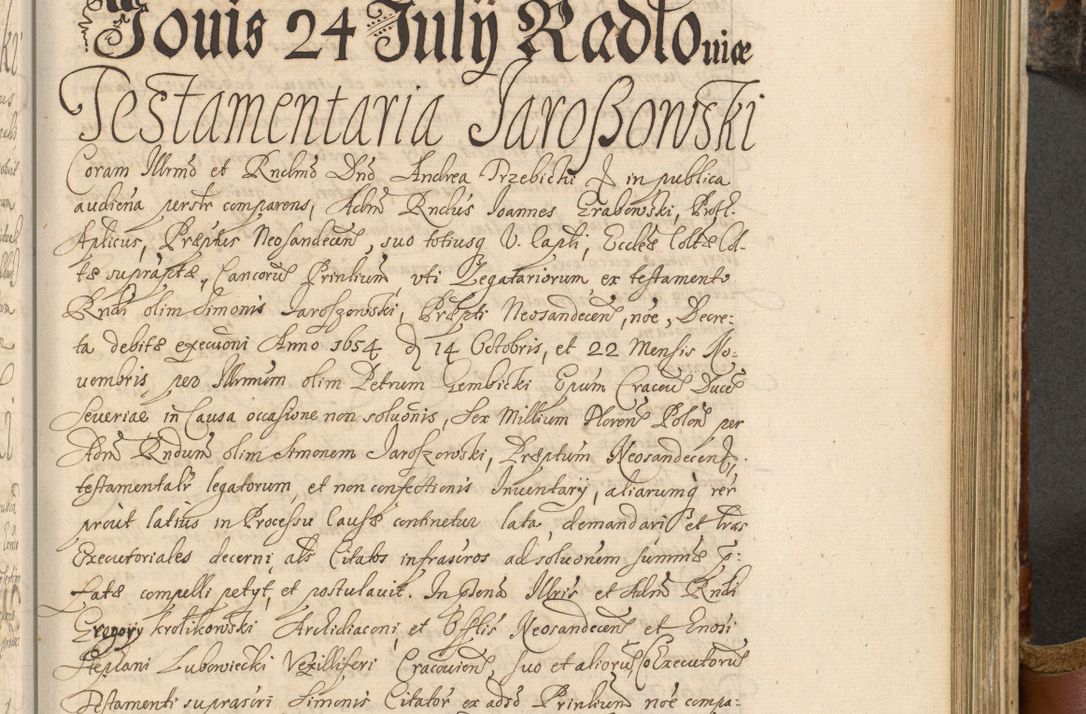 Jouis 24 Julÿ Radłoviæ
Testamentaria Jaroßowski
Coram Illrmo et Rndmo Dno Andrea Trzebicki in publica
audiena perstr comparens, Adm Rndus Joannes Grabowski, Protl.
Aplicus, Præptus Neosandecen, suo totiusq V. Capli, Eccleæ Coltæ Col-
tæ supraptæ, Cancorum Prinlium, uti Legatariorum ex testamento
Rndi olim Simonis Jaroszowski, Præpti Neosandecen, noe, Decre:
ta debitæ executioni Anno 1654 d 14 Octobris, et 22 Mensis No:
uembris per Illrmum olim Petrum Gembicki Epum Cracouien Ducem
Seueriae in Causa occasione non solutionis, Sex Millium Floren Polon per
Adm Rndum olim Simonem Jaroszowski, Præptum Neosandecen,
testamentalr legatorum, et non confectionis Inuentarÿ, aliarumq rer
prout latius in Processu Causæ continetur lata demandari et lras
Executoriales decerni, als Citatos infrascros ad soluonem summæ to:
tatæ compelli petÿt et postulauit. In pdena Illris et Adm Rndi
Gregorÿ Krolikowski Archidiaconi et Offlis Neosandecen et Gnosi
Stephani Lubowiecki Vexilliferi Cracouien, suo et aliorum Coexecutorum
Testamenti suprascri Simonis Citator ex adso Prinlium noe compa: